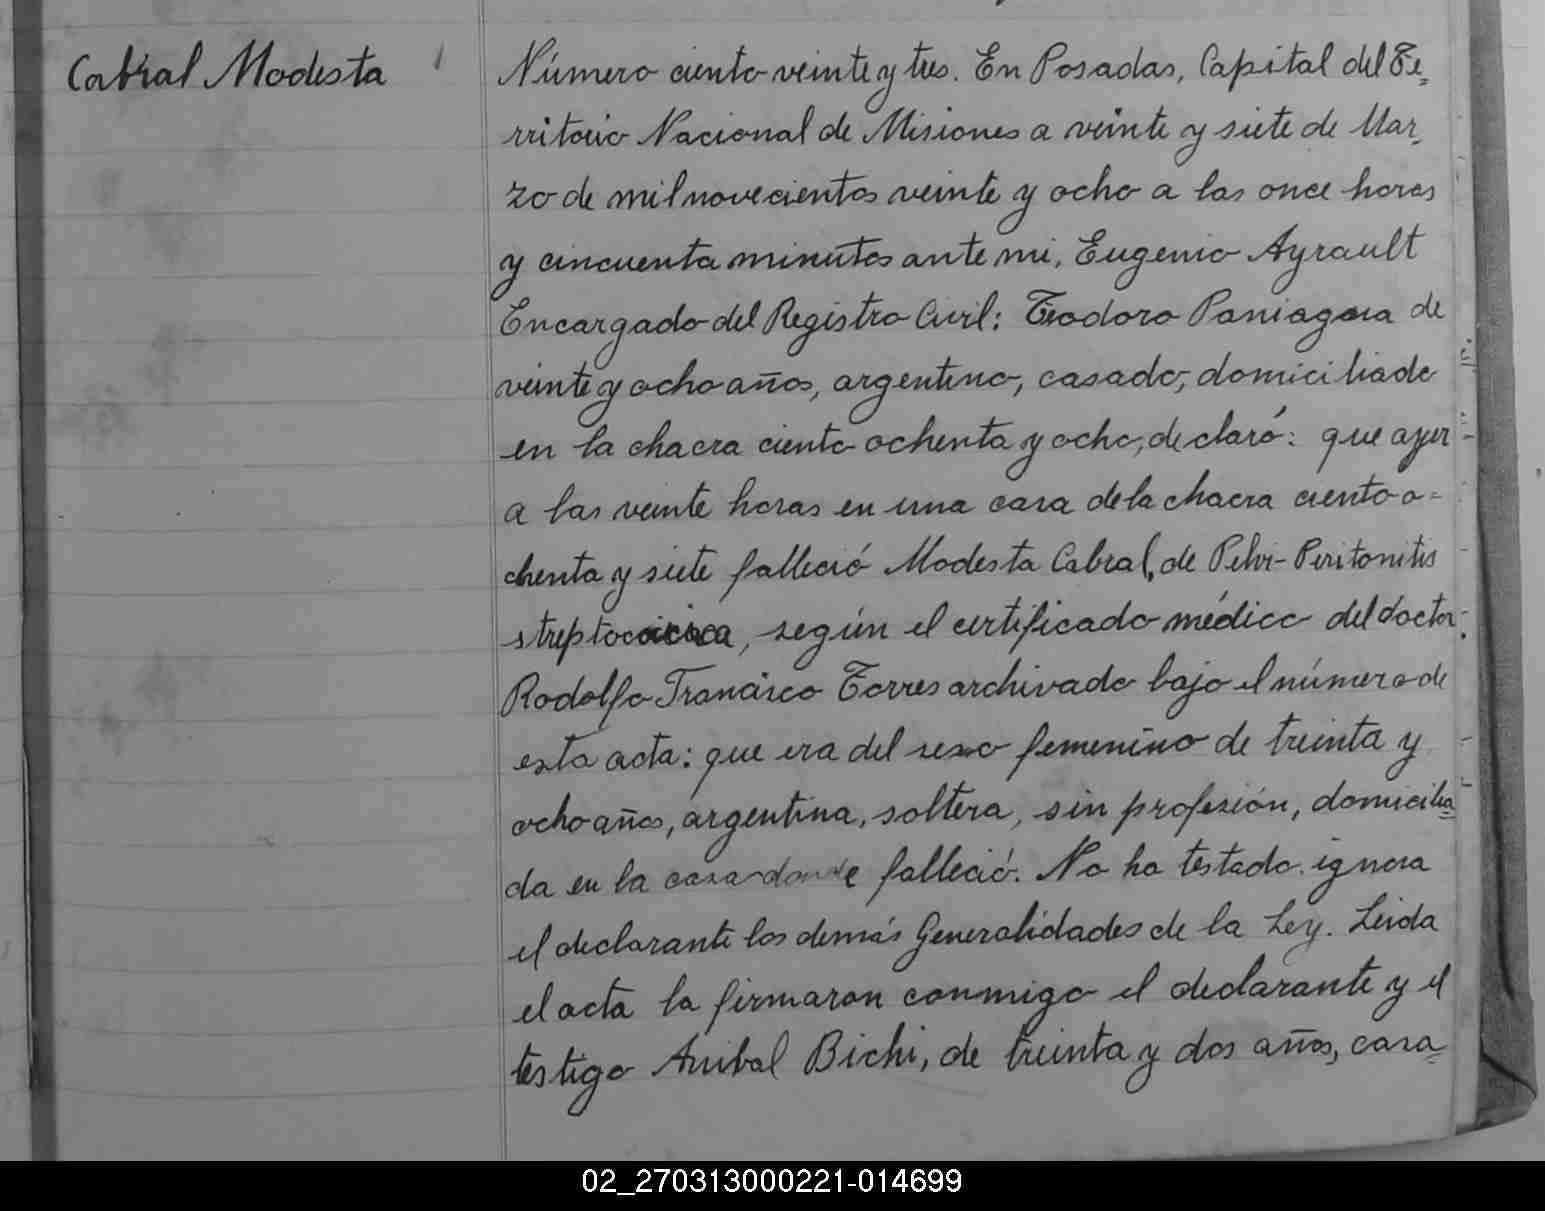 Cabral Modesta
Número ciento veinte y tres. En Posadas, Capital del Te=
rritorio Nacional de Misiones a veinte y siete de Mar=
zo de mil novecientos veinte y ocho a las once horas
y cincuenta minutos ante mi, Eugenio Ayrault
Encargado del Registro Civil: Teodoro Paniagua de
veinte y ocho años, argentino, casado, domiciliado
en la chacra ciento ochenta y ocho, declaró: que ayer
a las veinte horas en una casa de la chacra ciento o=
chenta y siete falleció Modesta Cabral, de Pelvi-Peritonitis
, según el certificado médico del doctor
Rodolfo Francisco Torres archivado bajo el número de
esta acta: que era del sexo femenino de treinta y
ocho años, argentina, soltera, sin profesión, domicilia=
da en la casa donde falleció. No ha testado. ignora
el declarante las demás Generalidades de la Ley. Leida
el acta la firmaron conmigo el declarante y el
testigo Anibal Bichi, de treinta y dos años, casa=
02_270313000221-014699